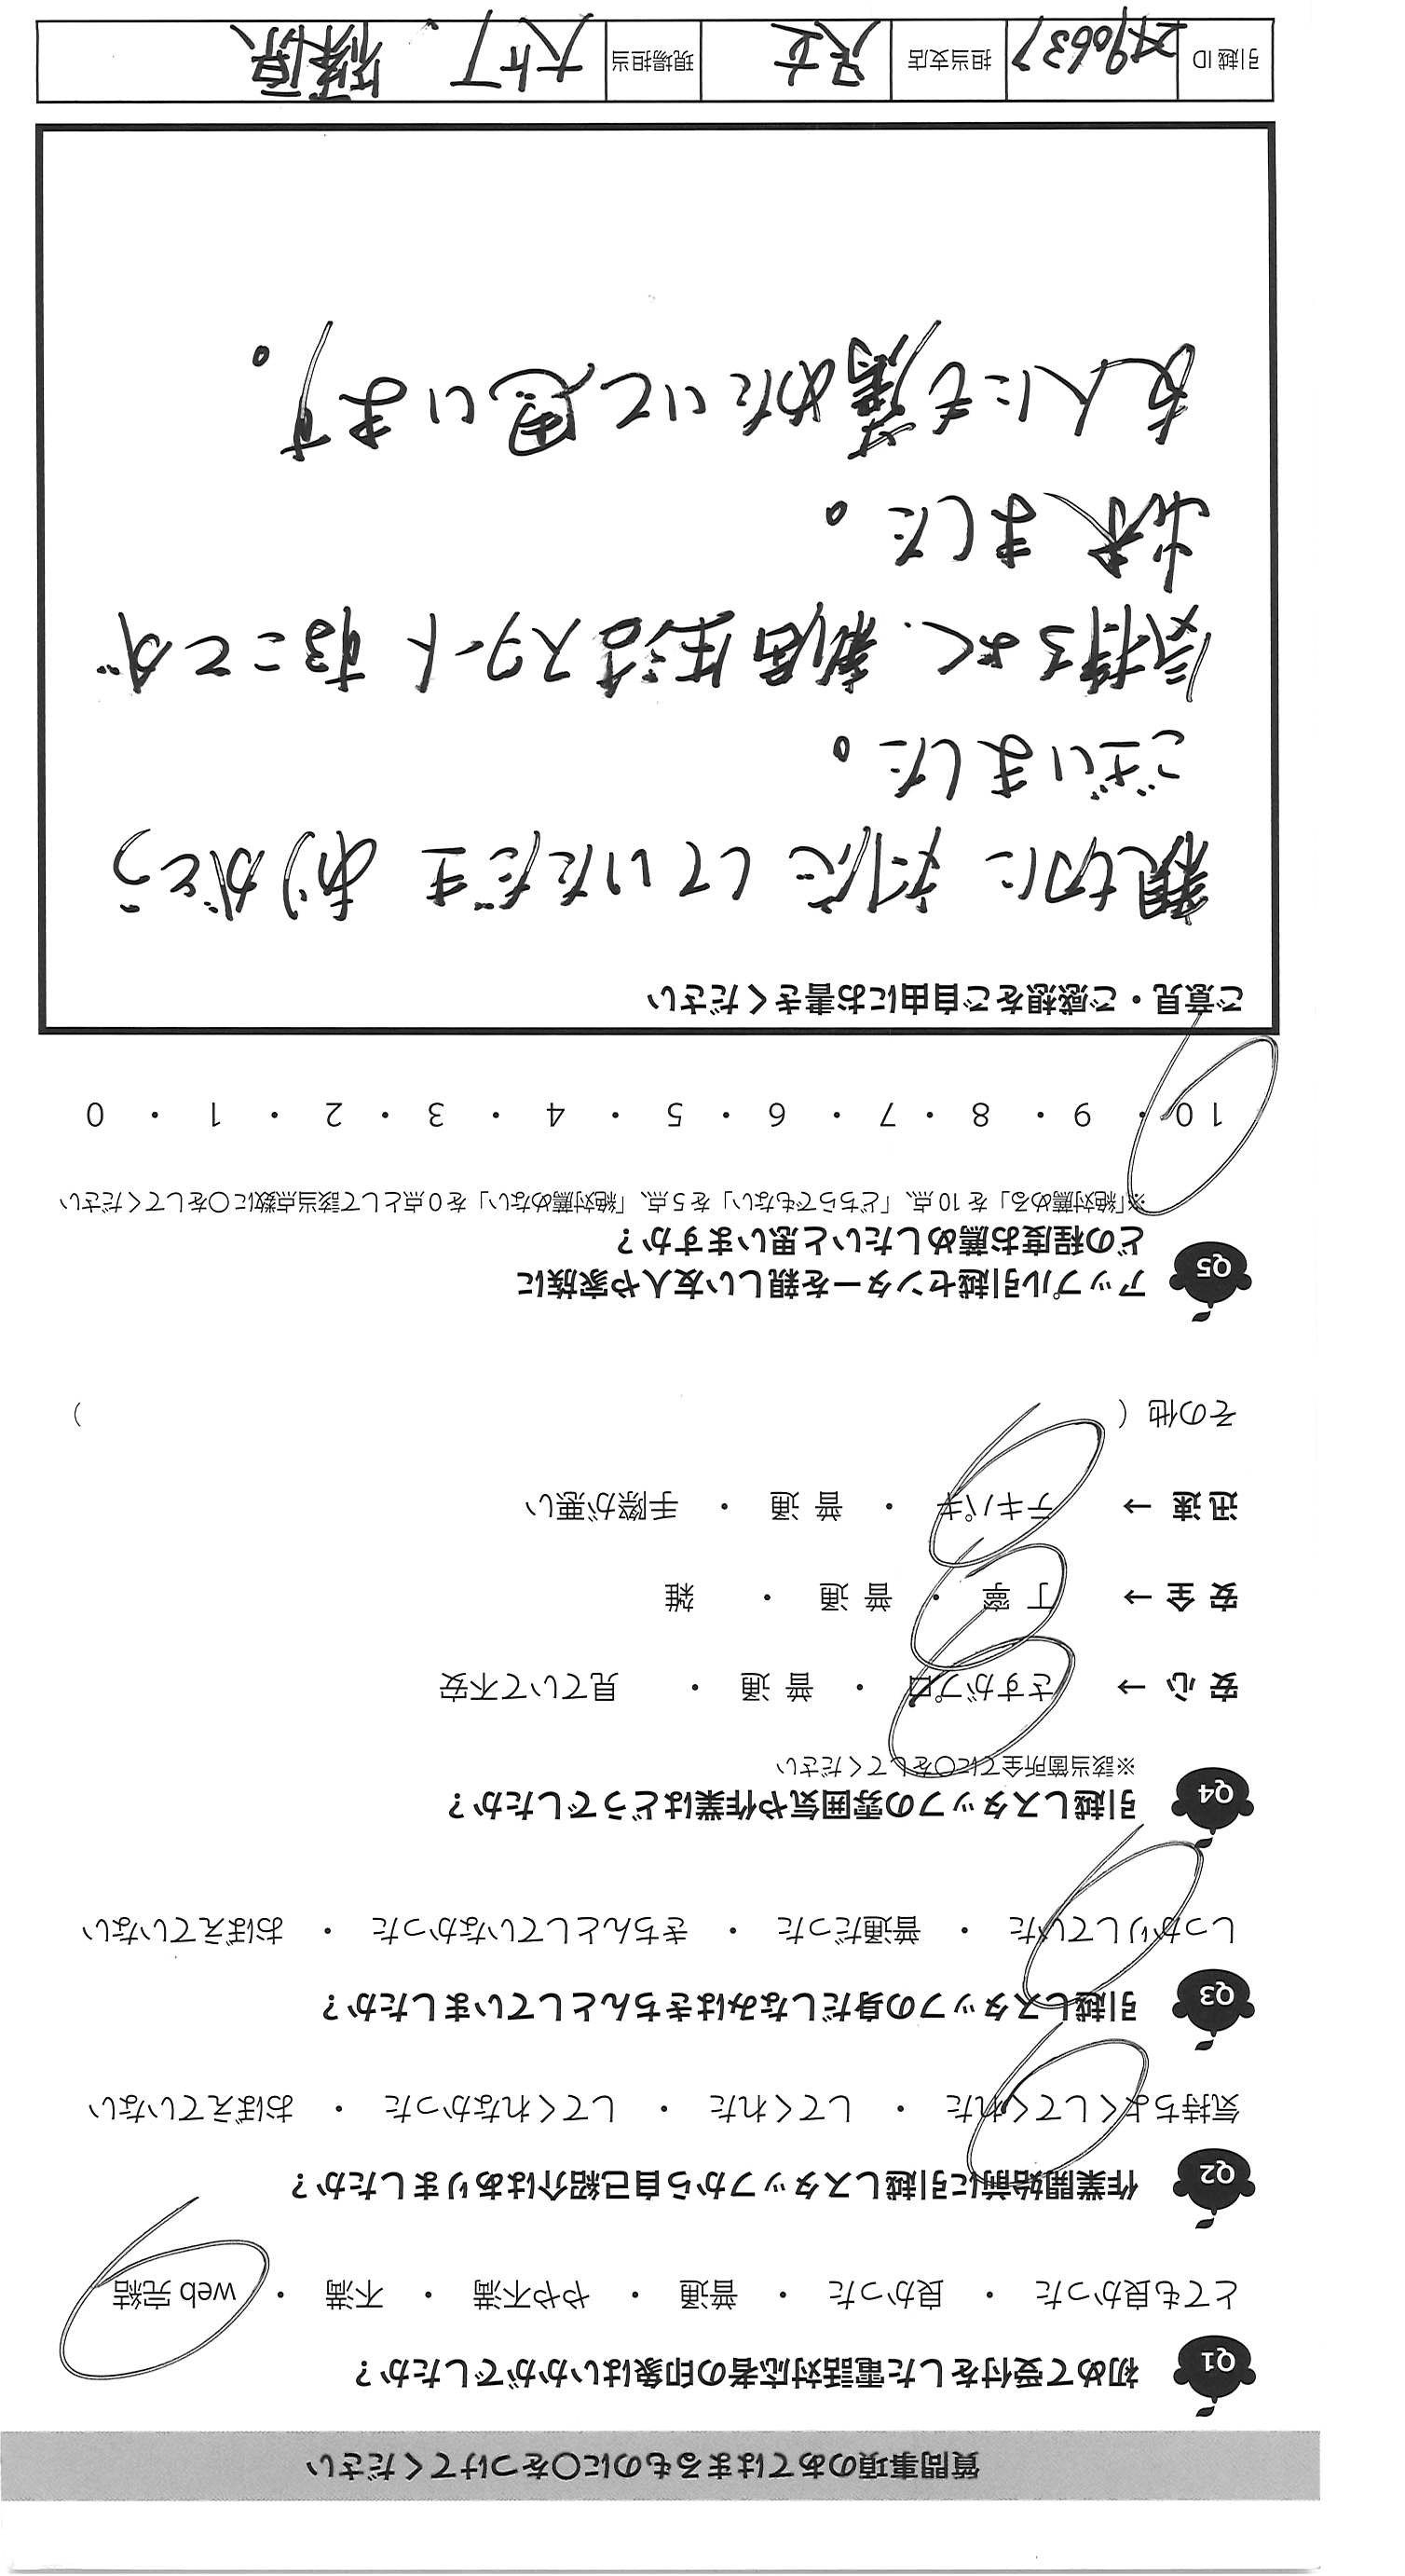 質問事項のあてはまるものに○をつけてください
Q1 初めて受付をした電話対応者の印象はいかがでしたか？
とても良かった ・ 良かった ・ 普通 ・ やや不満 ・ 不満 ・ web 完結
Q2 作業開始前に引越しスタッフから自己紹介はありましたか？
気持ちよくしてくれた ・ してくれた ・ してくれなかった ・ おぼえていない
Q3 引越しスタッフの身だしなみはきちんとしていましたか？
しっかりしていた ・ 普通だった ・ きちんとしていなかった ・ おぼえていない
Q4 引越しスタッフの雰囲気や作業はどうでしたか？
※該当箇所全てに○をしてください
安 心 → さすがプロ ・ 普 通 ・ 見ていて不安
安 全 → 丁 寧 ・ 普 通 ・ 雑
迅 速 → テキパキ ・ 普 通 ・ 手際が悪い
その他（ ）
Q5 アップル引越センターを親しい友人や家族に
どの程度お薦めしたいと思いますか？
※「絶対薦める」を 10 点、「どちらでもない」を 5 点、「絶対薦めない」を 0 点として該当点数に○をしてください
10 ・ 9 ・ 8 ・ 7 ・ 6 ・ 5 ・ 4 ・ 3 ・ 2 ・ 1 ・ 0
ご意見・ご感想をご自由にお書きください
親切に 対応 していただき ありがとう
ございました。
気持ちよく、新居生活スタート することが
出来ました。
友人にも薦めたいと思います。
引越 ID 担当支店 足立 現場担当 木下 篠原